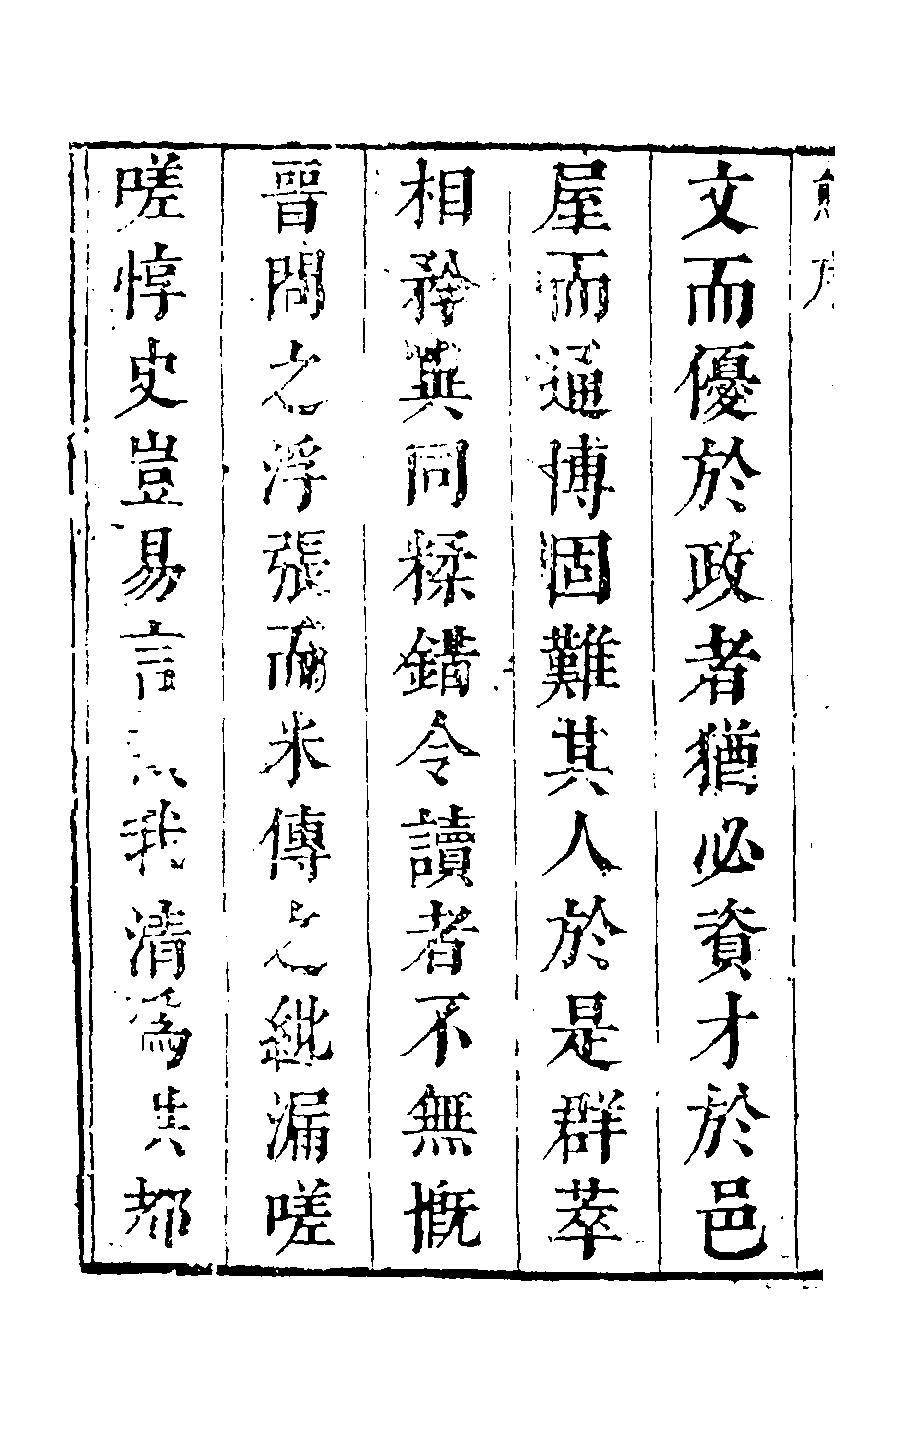 文而優於政者猶必資才於邑
屋而逼博固難其人於是群萃
相矜異同糅錯令讀者不無慨
晉問之浮張而米傳之紕漏嗟
嗟惇史豈易言哉我清為其都